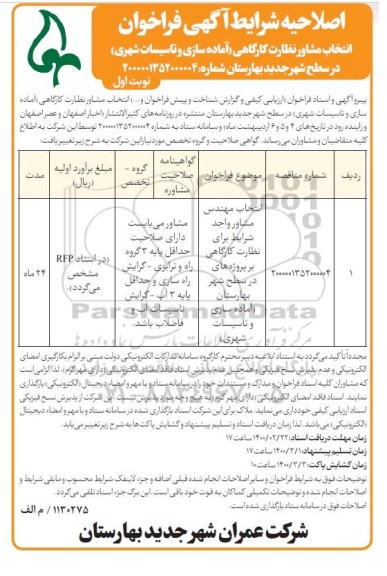 اصلاحیه شرایط آگهی فراخوان
انتخاب مشاور نظارت کارگاهی (آماده سازی و تاسیسات شهری)
در سطح شهر جدید بهارستان شماره: ۲۰۰۰۰۰۱۳۵۲۰۰۰۰۰۴
نوبت اول
پیرو آگهی و اسناد فراخوان (ارزیابی کیفی و گزارش شناخت و پیش فراخوان و...) انتخاب مشاور نظارت کارگاهی (آماده
سازی و تاسیسات شهری) در سطح شهر جدید بهارستان منتشره در روزنامه‌های کثیرالانتشار (اخبار اصفهان و عصر اصفهان
و زاینده رود در تاریخ‌های ۴ و ۵ و ۶ اردیبهشت ماه) و سامانه ستاد به شماره ۲۰۰۰۰۰۱۳۵۲۰۰۰۰۰۴ توسط این شرکت به اطلاع
کلیه متقاضیان و مشاوران می‌رساند. گواهی صلاحیت و گروه تخصص مورد نیاز این شرکت به شرح زیر تغییر یافت:
ردیف
شماره مناقصه
موضوع فراخوان
گواهینامه صلاحیت مشاوره
گروه - تخصص
مبلغ برآورد اولیه (ریال)
مدت
۱
۲۰۰۰۰۰۱۳۵۲۰۰۰۰۰۴
انتخاب مهندس
مشاور واجد
شرایط برای
نظارت کارگاهی
بر پروژه‌های
در سطح شهر
بهارستان
(آماده سازی
و تاسیسات
شهری)
مشاور می‌بایست
دارای صلاحیت
حداقل پایه ۳ گروه
راه و ترابری - گرایش
راه سازی و حداقل
پایه ۳ آب - گرایش
تاسیسات آب و
فاضلاب باشد.
(در اسناد RFP
مشخص
می‌گردد).
۲۴ ماه
مجدداً تأکید می‌گردد به استناد ابلاغیه دبیر محترم کارگروه سامانه تدارکات الکترونیکی دولت مبنی بر الزام بکارگیری امضای
الکترونیکی و عدم پذیرش نسخ فیزیکی و همچنین عدم پذیرش اسناد فاقد امضای الکترونیکی (دارای مهر گرم)، لذا الزامی است
که مشاوران کلیه اسناد فراخوان و مدارک و مستندات خود را در سامانه ستاد و با مهر و امضاء دیجیتال (الکترونیکی) بارگذاری
نمایند. اسناد فاقد امضای الکترونیکی (دارای مهر گرم) به هیچ وجه مورد پذیرش نیست. این شرکت از پذیرش نسخ فیزیکی
اسناد ارزیابی کیفی خودداری می‌نماید. ملاک برای این شرکت اسناد بارگذاری شده در سامانه ستاد و با مهر و امضاء دیجیتال
(الکترونیکی) می‌باشد. لذا زمان دریافت اسناد و تسلیم پیشنهاد و گشایش پاکت‌ها به شرح زیر تغییر می‌یابد.
زمان مهلت دریافت اسناد: ۱۴۰۰/۰۲/۲۲ ساعت ۱۷
زمان تسلیم پیشنهاد: ۱۴۰۰/۳/۱ ساعت ۱۷
زمان گشایش پاکت: ۱۴۰۰/۳/۳ ساعت ۱۰
توضیحات فوق به شرایط فراخوان و سایر اصلاحات انجام شده قبلی اضافه و جزء لاینفک شرایط محسوب و مابقی شرایط و
اصلاحات انجام شده و توضیحات تکمیلی کماکان به قوت خود باقی است. این برگ جزء اسناد تلقی می‌گردد.
اصلاحات فوق در سامانه ستاد بارگذاری شده است.
۱۱۳۰۲۷۵ / م الف
شرکت عمران شهر جدید بهارستان